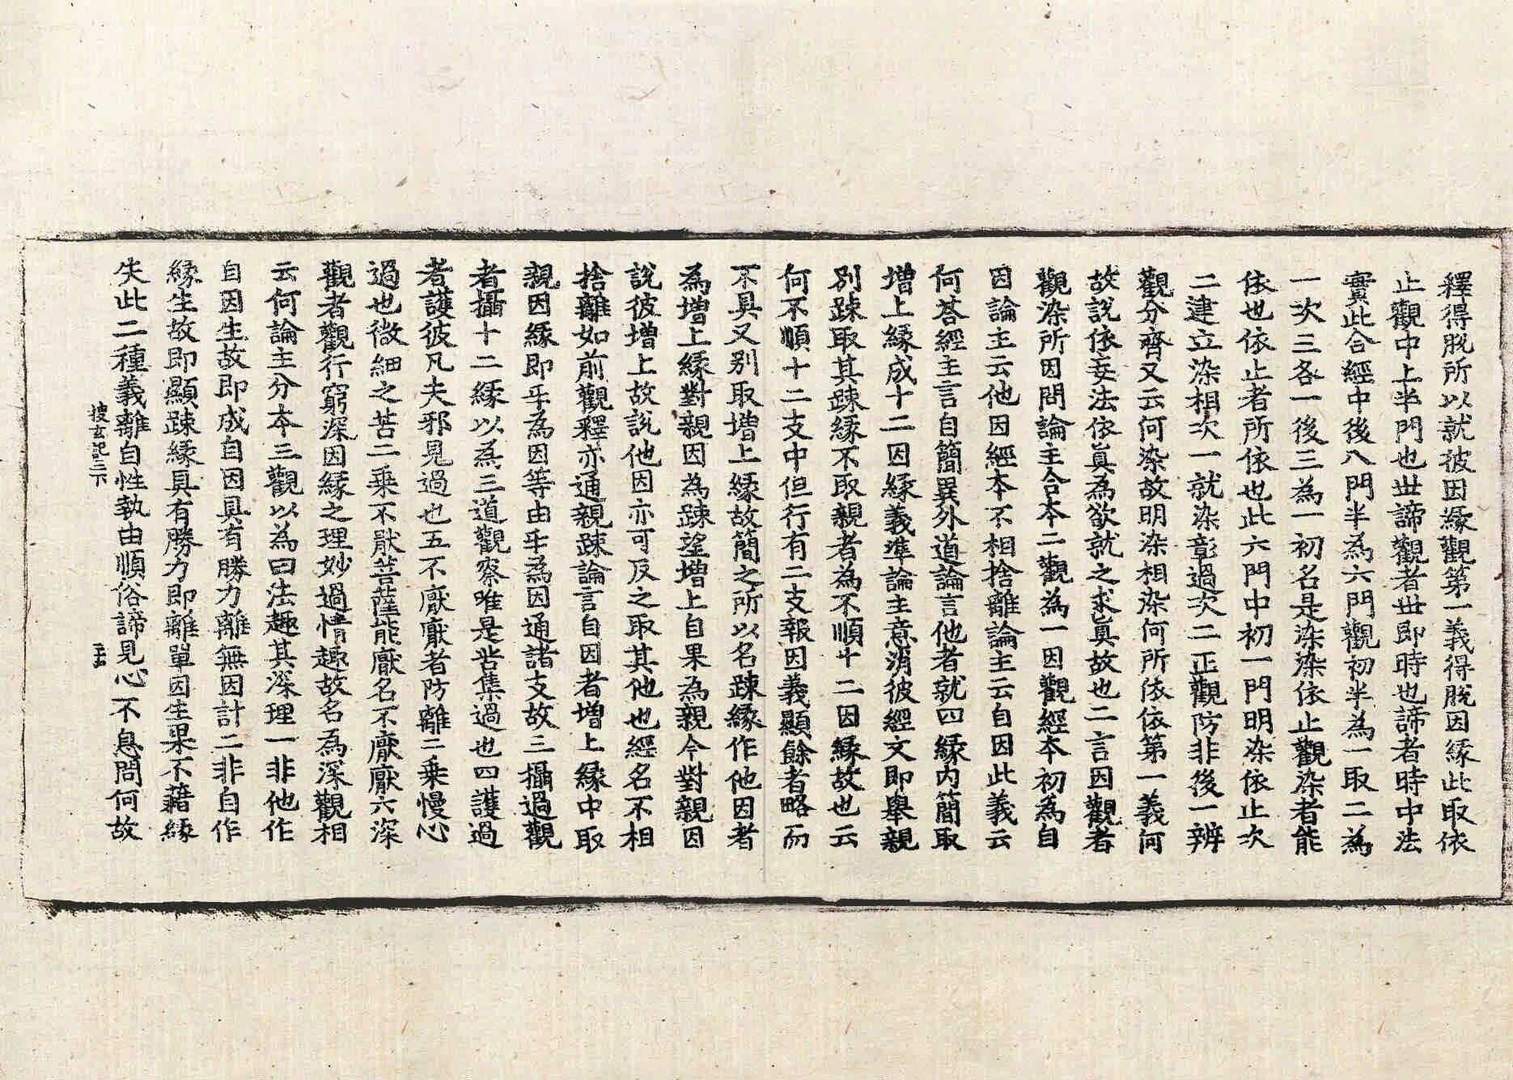 釋得脫所以就彼因緣觀第一義得脫因緣此取依
止觀中上半門也世諦觀者世即時也諦者時中法
實此合經中後八門半為六門觀初半為一取二為
一次三各一後三為一初名是染染依止觀染者能
依也依止者所依也此六門中初一門明染依止次
二建立染相次一就染彰過次二正觀防非後一辨
觀分齊又云何染故明染相染何所依依第一義何
故說依妄法依真為欲就之求真故也二言因觀者
觀染所因問論主合本二觀為一因觀經本初為自
因論主云他因經本不相捨離論主云自因此義云
何荅經主言自簡異外道論言他者就四緣內簡取
增上緣成十二因緣義準論主意消彼經文即舉親
別踈取其踈緣不取親者為不順十二因緣故也云
何不順十二支中但行有二支報因義顯餘者略而
不具又別取增上緣故簡之所以名踈緣作他因者
為增上緣對親因為踈望增上自果為親今對親因
說彼增上故說他因亦可反之取其他也經名不相
捨離如前觀釋亦通親踈論言自因者增上緣中取
親因緣即乎為因等由乎為因通諸支故三攝過觀
者攝十二緣以為三道觀察唯是苦集過也四護過
者護彼凡夫邪見過也五不厭厭者防離二乘慢心
過也微細之苦二乘不猒菩薩能厭名不厭厭六深
觀者觀行窮深因緣之理妙過情趣故名為深觀相
云何論主分本三觀以為曰法趣其深理一非他作
自因生故即成自因具有勝力離無因計二非自作
緣生故即顯踈緣具有勝力即離單因生果不藉緣
失此二種義離自性執由順俗諦見心不息問何故
搜玄記三下